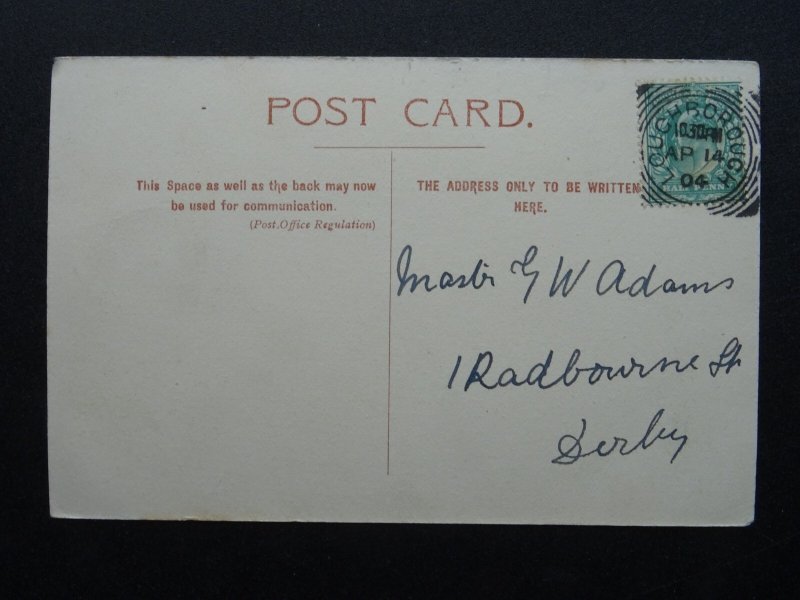 POST CARD.
This Space as well as the back may now
be used for communication.
(Post Office Regulation)
THE ADDRESS ONLY TO BE WRITTEN
HERE.
OUGHBOROUGH
10.30PM
AP 14
04
HALFPENNY
Master G W Adams
1 Radbourne St
Derby